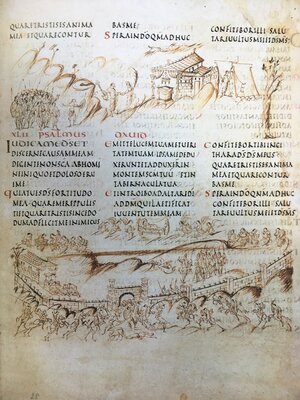 QUARETRISTISESANIMA
MEAETQUARECONTUR
BASME
SPERAINDOQMADHUC
CONFITEBORILLISALU
TAREUULTUSMEIETDSMS
XLII PSALMUS DAUID
IUDICAMEDSET
DISCERNECAUSAMMEAM
DEGENTENONSCAABHOMI
NEINIQUOETDOLOSOERU
EME
QUIATUESDSFORTITUDO
MEAQUAREMEREPPULIS
TIETQUARETRISTISINCEDO
DUMADFLIGITMEINIMICUS
EMITTELUCEMTUAMETUERI
TATEMTUAMIPSAMEDEDU
XERUNTETADDUXERUN
MONTEMSCMTUU ETIN
TABERNACULATUA
ETINTROIBOADALTAREDI
ADDMQUILAETIFICAT
IUUENTUTEMMEAM
CONFITEBORTIBIINCI
THARADSDSMEUS
QUARETRISTISESANIMA
MEAETQUARECONTUR
BASME
SPERAINDOQMADHUC
CONFITEBORILLISALU
TAREUULTUSMEIETDSMS